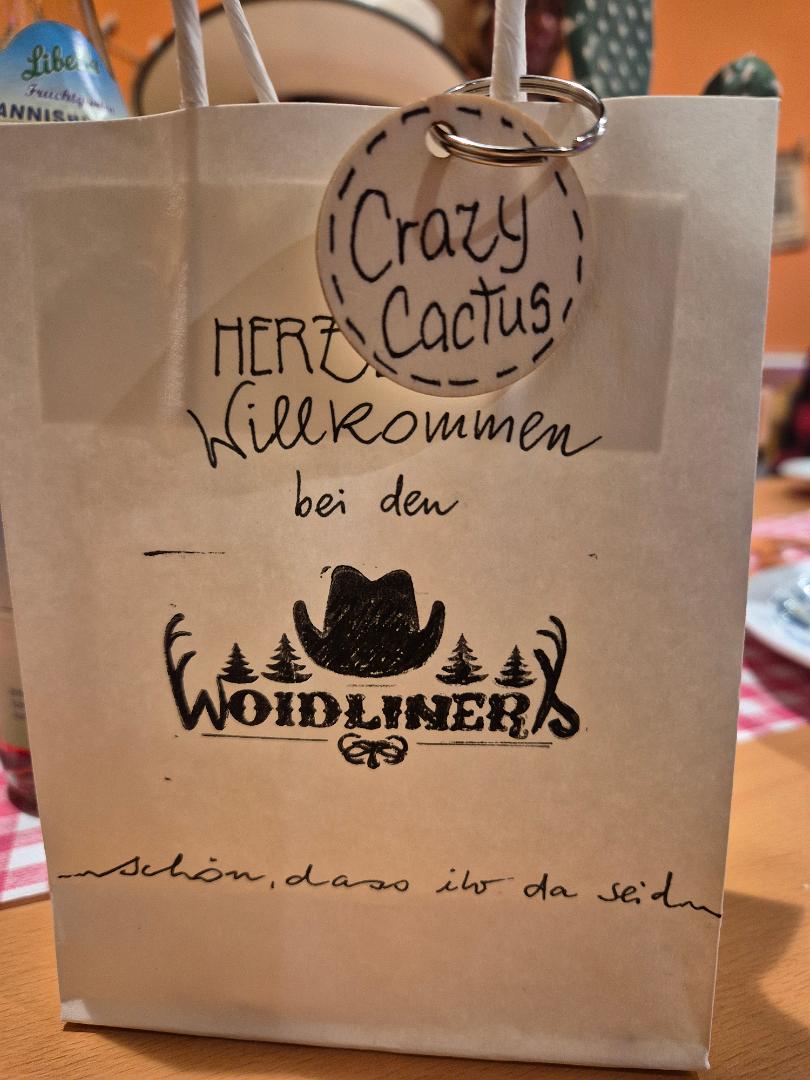 Libella
Crazy
Cactus
HERZ
Willkommen
bei den
WOIDLINER'S
schön, dass ihr da seid